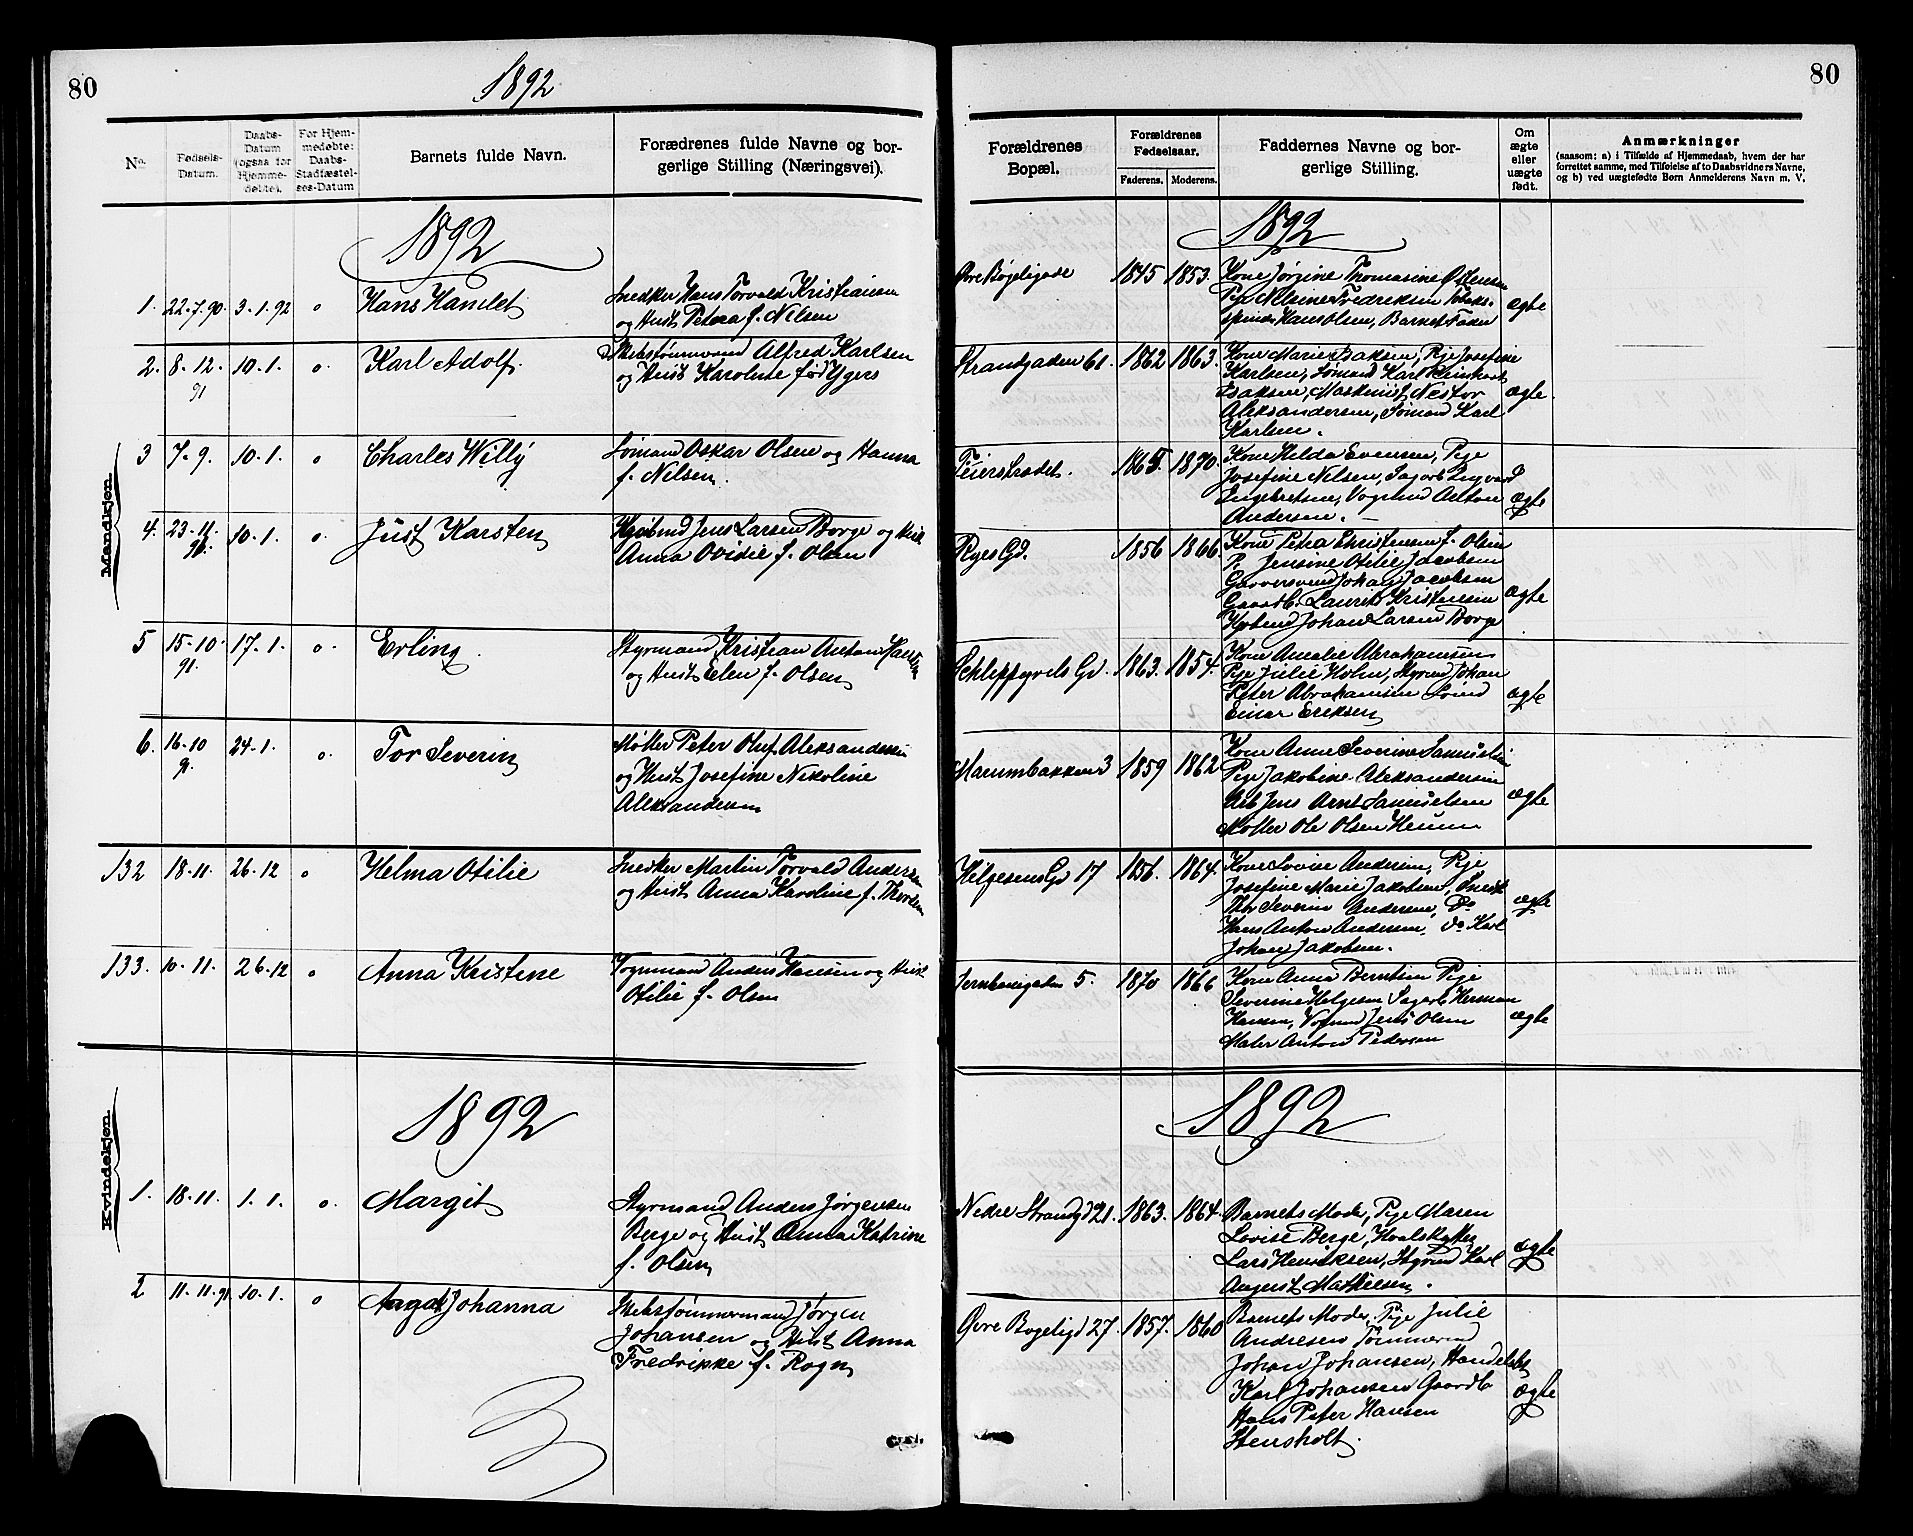 80
1892
No.
Fødsels-
Datum.
Daabs-
Datum
(ogsaa for
Hjemme-
døbte).
For Hjem-
medøbte:
Daabs-
Stadfæstel-
ses-Datum
Barnets fulde Navn.
Forædrenes fulde Navne og bor-
gerlige Stilling (Næringsvei).
1892
Mandkjøn.
1. 22-7.90. 3-1.92 o Hans Hamlet Snedker Hans Torvald Kristiansen
og Hust Petrea f. Nilsen
2. 8-12. 10-1. o. Karl Adolf. Alfred Karlsen
91 og Hust Karoline født
3 7-9. 10-1. o Charles Willy Sømand Oskar Olsen og Hanna
f. Nilsen.
4. 23-11. 10-1. o. Just Karsten Jens Larsen Borge og Hust
91. Anna Ovidie f. Olsen
5 15-10. 17-1. o. Erling. Styrmand Kristian Anton Hansen
91. og Hust Elen f. Olsen
6. 16-10 24-1. o. Tor Severin Møller Peter Oluf Aleksandersen
91. og Hust Josefine Nikoline
Aleksandersen
132 18-11. 26-12 o Helma Otilie Snedker Martin Torvald Andersen
og Hust Anna Karoline f.
133. 10-11. 26-12 o Anna Kristine Anders Hansen og Hust
Otilie f. Olsen
Kvindekjøn.
1892
1. 18-11. 1.1. o. Margit Styrmand Anders Jørgensen
Berge og Hust Anna Katrine
f. Olsen
2 11-11.91. 10-1. o Johanna Skibstømmermand Jørgen
Johansen og Hust Anna
Fredrikke f. Rogn
80
Forældrenes
Bopæl.
Forældrenes
Fødselsaar.
Faderens. Moderens.
Faddernes Navne og bor-
gerlige Stilling.
Om
ægte
eller
uægte
født.
Anmærkninger
(saasom: a) i Tilfælde af Hjemmedaab, hvem der har
forrettet samme, med Tilføielse af to Daabsvidners Navne,
og b) ved uægtefødte Børn Anmelderens Navn m. V.
1892
Øvre Bøgeligade 1845 1853. Kone Jørgine Thomasine
Pige Nilsine Fredriksen
Hans Olsen, Barnets Fader ægte
Strandgaden 61. 1862 1863. Kone Marie Isaksen, Pige Josefine
Karlsen, Sømand Karl
Isaksen, Maskinist Nestor ægte.
Aleksandersen, Sømand Karl
Karlsen.
1865. 1870. Kone Hilda Evensen, Pige
Josefine Nilsen, Sagarb Ingvard
Engebretsen, Vognmd Anton ægte
Andersen.
Ryes Gd. 1856 1866. Kone Petra Christensen f. Olsen
P. Jensine Otilie Jacobsen
Garversvend Johan Jacobsen ægte
Gaardb. Laurits Kristensen
Johan Larsen Borge
1863. 1854. Kone Amalie Abrahamsen
Pige Julie Holm, Styrmd Johan
Peter Abrahamsen ægte
Einar Eriksen
3 1859 1862 Kone Anne Severine Samuelsen
Pige Jakobine Aleksandersen
Arb Jens Arnt Samuelsen ægte
Møller Ole Olsen
Helgesens Gd 17 1856. 1864. Kone Lovise Andersen, Pige
Josefine Marie Jakobsen, Snedk
Thor Severin Andersen, Do ægte
Hans Anton Andersen, Do Karl
Johan Jakobsen.
Jernbanegaden 5. 1870 1866 Kone Anna Berntsen Pige
Severine Helgesen Sagarb Herman
Hansen, Vognmd Jens Olsen ægte
Maler Anton Pedersen
1892
Nedre Strandgd 21. 1863. 1864. Barnets Moder, Pige Maren
Lovise Berge, Hvalskytter
Lars Henriksen, Styrmd Karl ægte
August Mathiesen.
Øvre Bøgeligd 27. 1857. 1860 Barnets Moder, Pige Julie
Andresen, Tømmermd
Johan Johansen, Handelsb
Karl Johansen Gaardb ægte
Hans Peter Hansen
Stensholt.